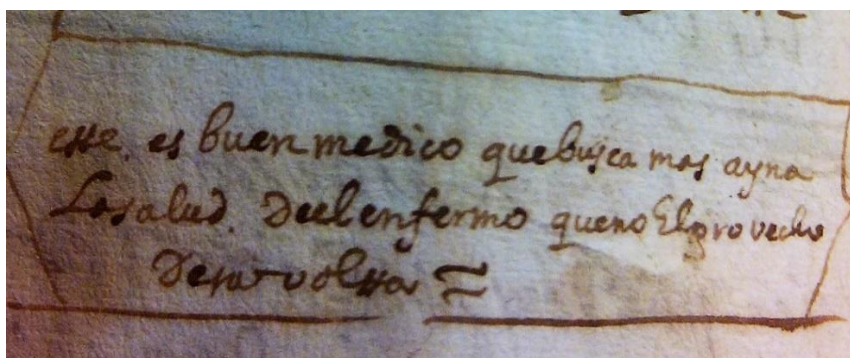 esse. es buen medico que busca mas ayna
La salud. Deel enfermo que no El provecho
De su volssa